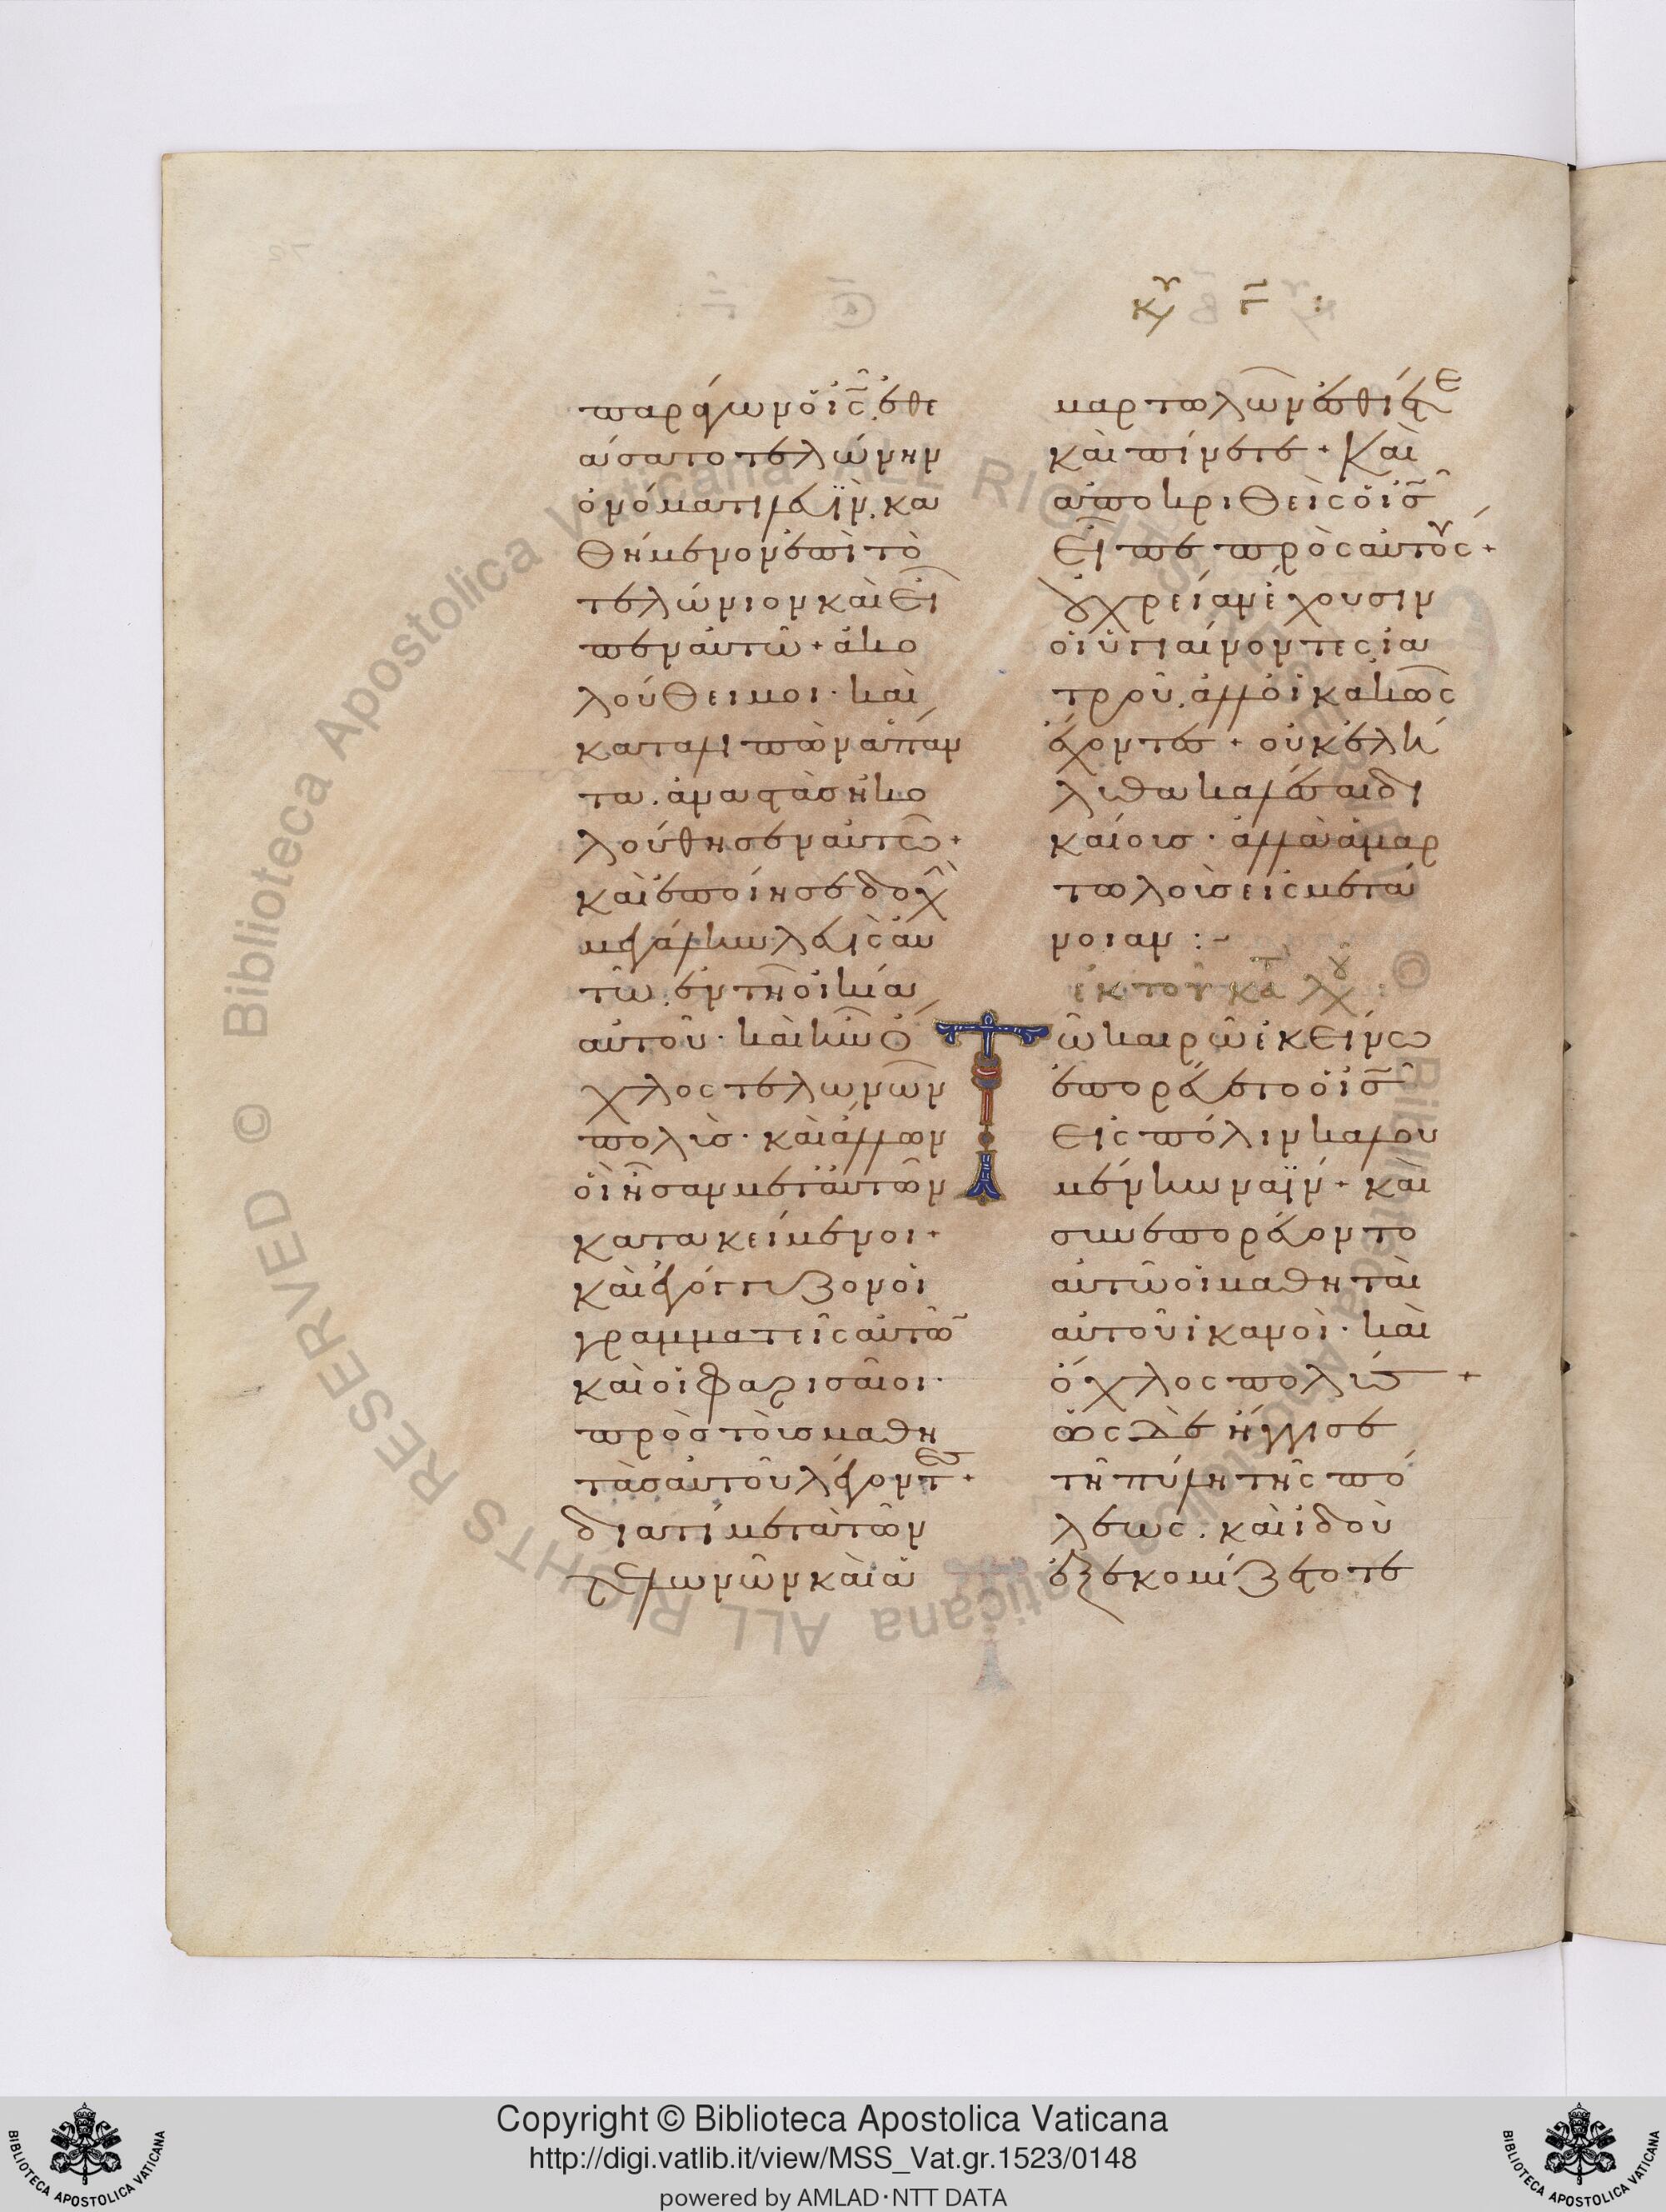 κυ γ :
παράγων ὁ ἰς ἐθε
άσατο τελώνην
ὀνόματι λευϊν. κα
θήμενον ἐπὶ τὸ
τελώνιον καὶ εἶ
πεν αὐτῶ + ἀκο
λούθει μοι · καὶ
καταλιπὼν ἅπαν
τα. ἀναστὰς ἠκο
λούθησεν αὐτῶ +
καὶ ἐποίησε δοχὴ
μεγάλην λευὶς αυ
τῶ. ἐν τῆ οἰκία
αὐτοῦ · καὶ ἦν ὄ
χλος τελωνῶν
πολὺς · καὶ ἄλλων
οἳ ἦσαν μετ αὐτῶν
κατακείμενοι +
καὶ ἐγόγγυζον οἱ
γραμματεῖς αὐτῶ
καὶ οἱ φαρισαῖοι ·
πρὸς τοὺς μαθη
τὰς αὐτοῦ λέγοντες +
διατί μετὰ τῶν
τελωνῶν καὶ ἁ
μαρτωλῶν ἐσθίετε
καὶ πίνετε + Καὶ
ἀποκριθεὶς ὁ ἰς
εἶπε πρὸς αὐτούς +
οὐ χρείαν ἔχουσιν
οἱ ὑγιαίνοντες ἰα
τροῦ. ἀλλ οἱ κακῶς
ἔχοντες + οὐκ ἐλή
λυθα καλέσαι δι
καίους · ἀλλὰ ἁμαρ
τωλοὺς εἰς μετά
νοιαν : -
ἐκ τοῦ κατ λου :
Τῶ καιρῶ ἐκείνω
ἐπορεύετο ὁ ἰς
εἰς πόλιν καλου
μένην ναϊν + καὶ
συνεπορεύοντο
αὐτῶ οἱ μαθηταὶ
αὐτοῦ ἱκανοὶ · καὶ
ὄχλος πολύς +
ὡς δὲ ἤγγισε
τῆ πύλη τῆς πό
λεως . καὶ ἰδοὺ
ἐξεκομίζετο τε
Copyright © Biblioteca Apostolica Vaticana
http://digi.vatlib.it/view/MSS_Vat.gr.1523/0148
powered by AMLAD・NTT DATA
BIBLIOTECA APOSTOLICA VATICANA
BIBLIOTECA APOSTOLICA VATICANA
© Biblioteca Apostolica Vaticana ALL RIGHTS RESERVED © Biblioteca Apostolica Vaticana ALL RIGHTS RESERVED